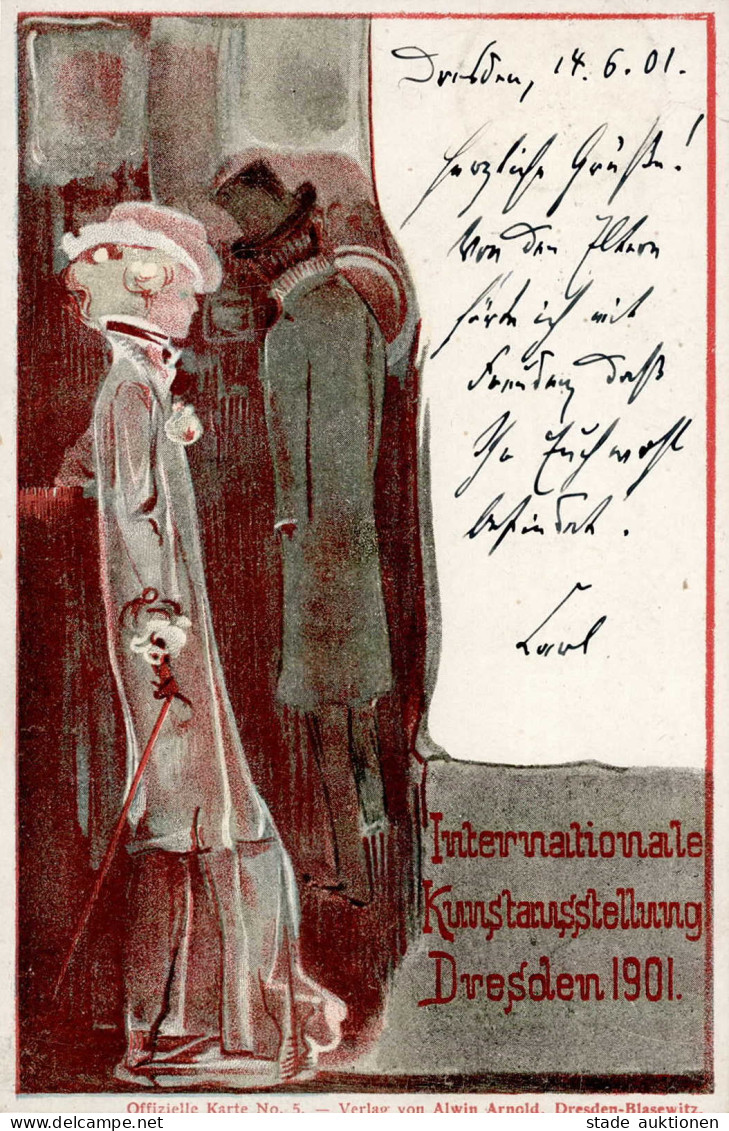 Dresden, 14.6.01.
Herzliche Grüße!
Von den Eltern
höre ich mit
Freuden, daß
Ihr Euch wohl
befindet.
Karl
Internationale
Kunstausstellung
Dresden 1901.
Offizielle Karte No. 5. — Verlag von Alwin Arnold, Dresden-Blasewitz.
stade auktionen